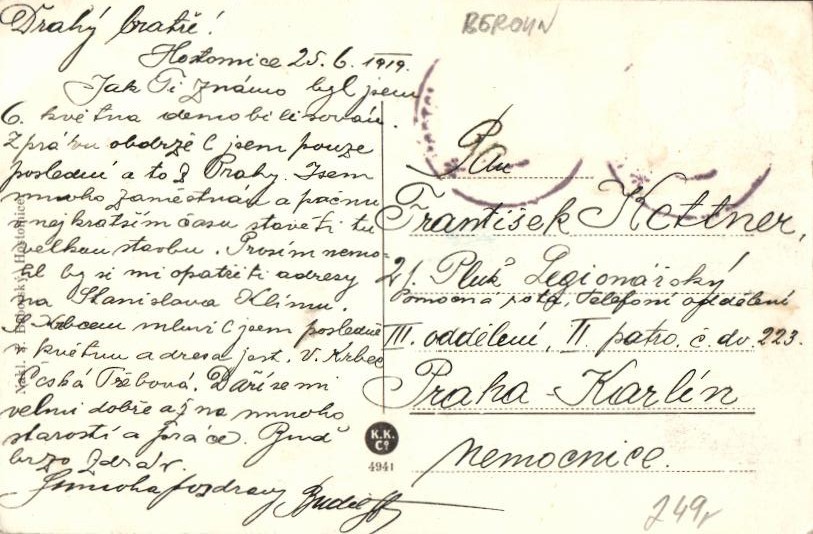 BEROUN
Drahý bratře!
Hostomice 25.6.1919.
Jak Ti známo byl jsem
6. května demobilisován.
Zprávu obdržel jsem pouze
poslední a to z Prahy. Jsem
mnoho zaměstnán a počnu
v nejkratším času stavěti tu
velkou stavbu. Prosím nemo-
hl by si mi opatřiti adresy
na Stanislava Klímu.
S Krbcem mluvil jsem posledně
v květnu adresa jest. V. Krbec
Česká Třebová. Daří se mi
velmi dobře až na mnoho
starostí a práce. Buď
brzo zdráv.
S mnoha pozdravy
Pan
František Kettner,
21. Pluk Legionářský
Pomocná rota, Telefoní oddělení
III. oddělení, II patro. č. dv. 223.
Praha-Karlín
nemocnice.
K.K.
Co
4941
Hostomice
249,